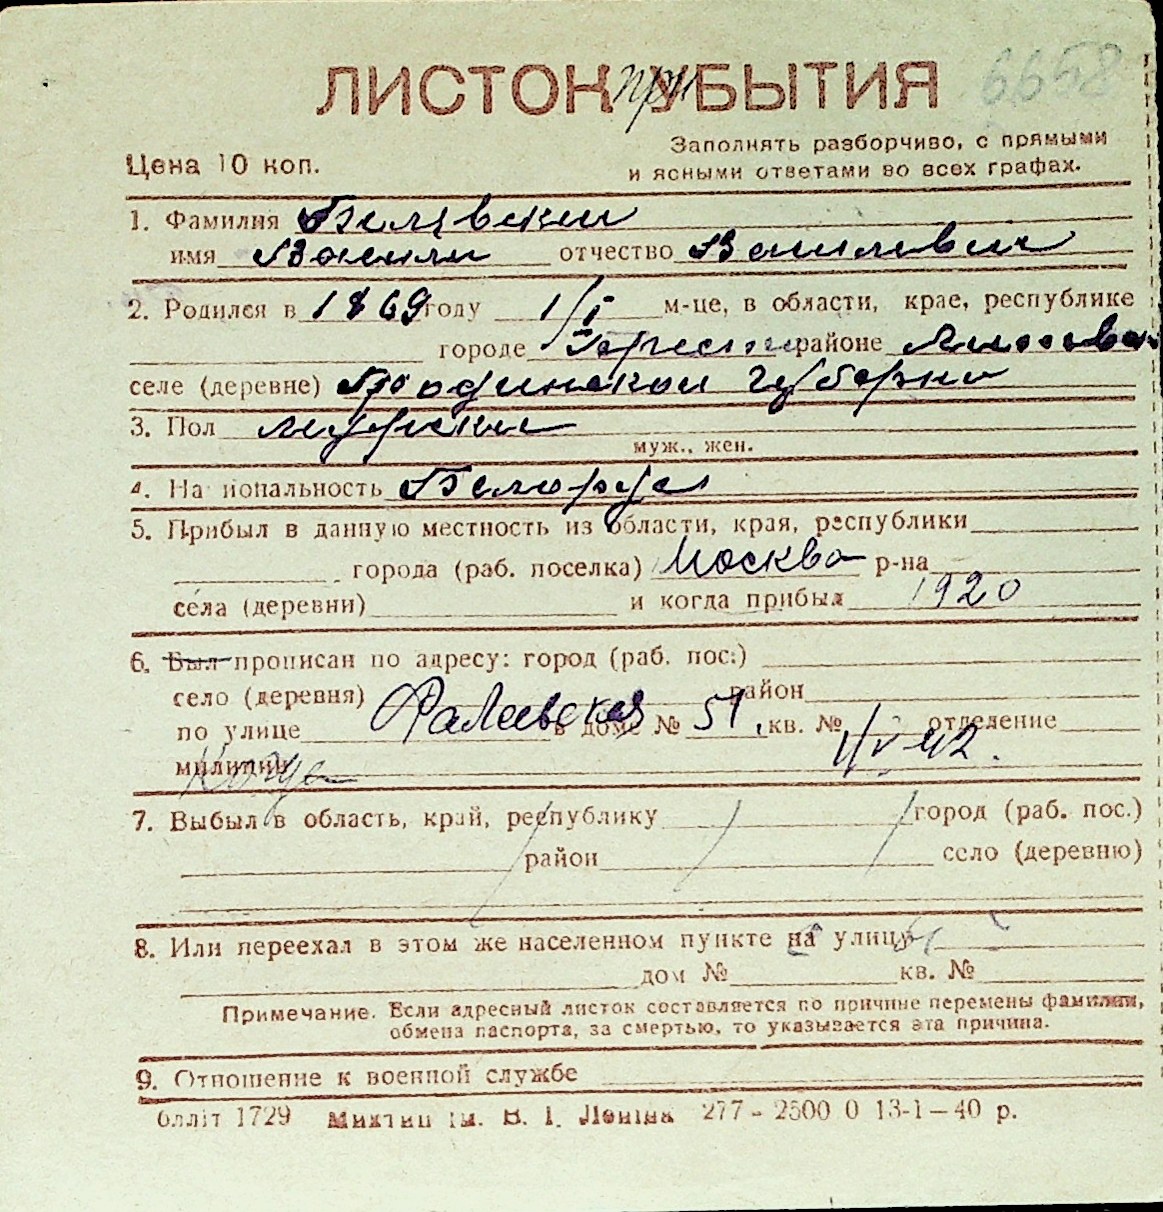 6658
ЛИСТОК при УБЫТИЯ
Цена 10 коп.
Заполнять разборчиво, с прямыми
и ясными ответами во всех графах.
1. Фамилия
имя Василий отчество Васильевич
2. Родился в 1869 году 1/I м-це, в области, крае, республике
городе районе
селе (деревне) Гродненской губерни
3. Пол мужской
муж., жен.
4. Национальность Белорус
5. Прибыл в данную местность из области, края, республики
города (раб. поселка) Москва р-на
села (деревни) и когда прибыл 1920
6. Был прописан по адресу: город (раб. пос.)
село (деревня) район
по улице Фалеевская в доме № 51, кв. № отделение
милиции 1/V 42.
7. Выбыл в область, край, республику город (раб. пос.)
район село (деревню)
8. Или переехал в этом же населенном пункте на улицу
дом № кв. №
Примечание. Если адресный листок составляется по причине перемены фамилии,
обмена паспорта, за смертью, то указывается эта причина.
9. Отношение к военной службе
блліт 1729 ім. В. І. Леніна 277-2500 0 13-1-40 р.